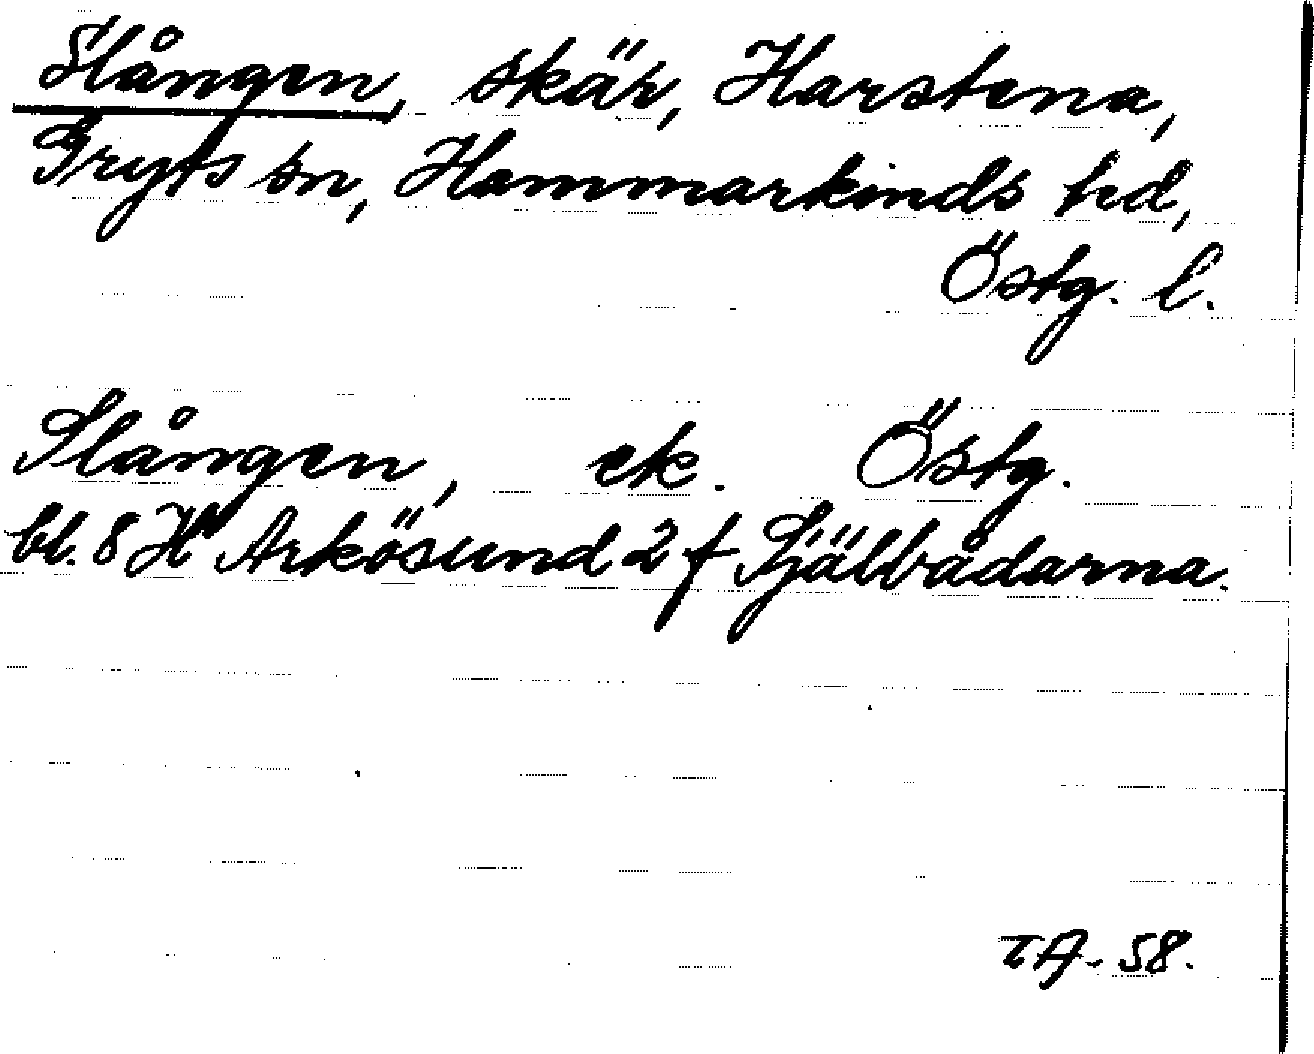 Slången, skär, Harstena,
Gryts sn, Hammarkinds hd,
Östg. l.
Slången, ek. Östg.
bl. 8 H Arkösund 2 f Själbådarna.
TA-58.